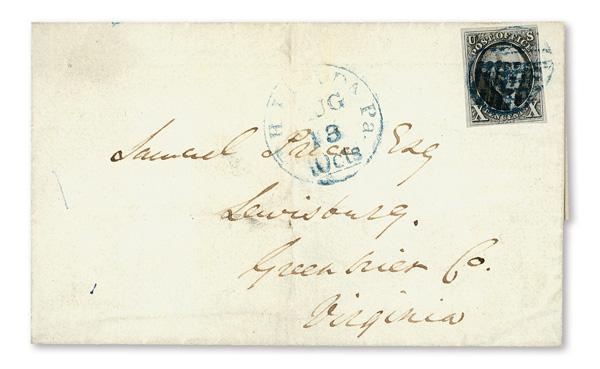 U S
POST OFFICE
X X
PHILADA Pa.
AUG
13
10 cts
Samuel Price Esq
Lewisburg.
Greenbrier Co.
Virginia